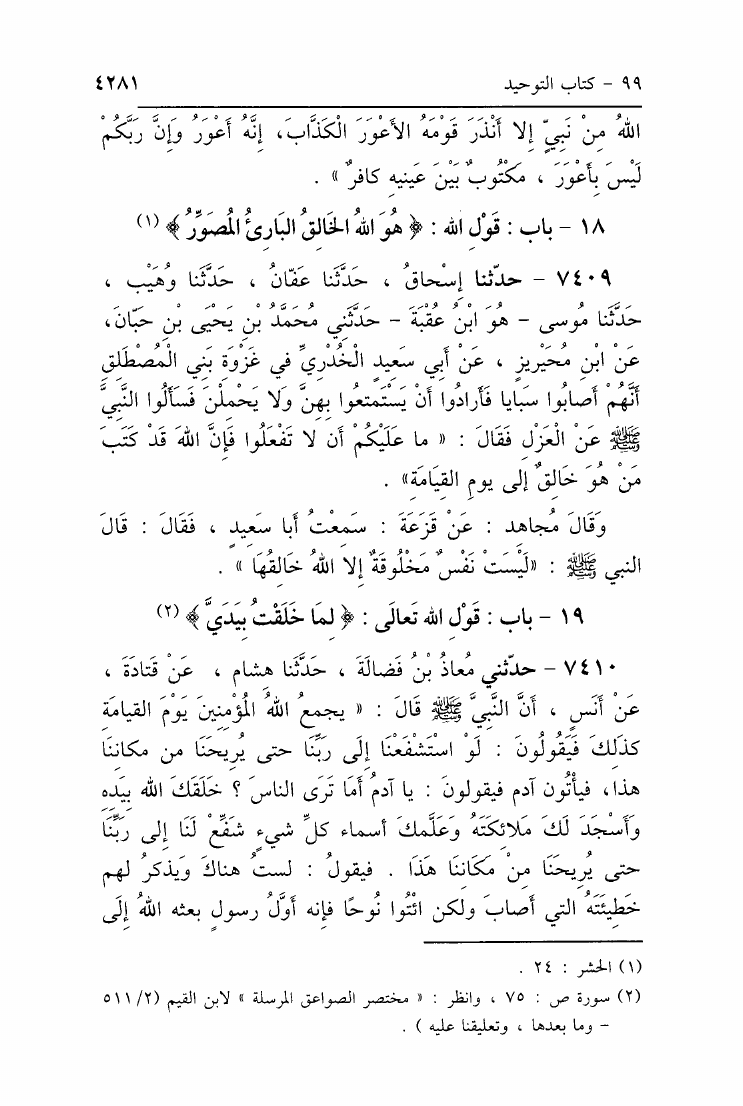 ٩٩ - كتاب التوحيد ٤٢٨١
اللهُ مِنْ نَبِيٍّ إِلا أَنْذَرَ قَوْمَهُ الأَعْوَرَ الْكَذَّابَ، إِنَّهُ أَعْوَرُ وَإِنَّ رَبَّكُمْ
لَيْسَ بِأَعْوَرَ ، مَكْتُوبٌ بَيْنَ عَينيهِ كافرٌ » .
١٨ - باب : قَوْلِ الله : ﴿ هُوَ اللهُ الخَالقُ البَارئُ الْمُصَوِّرُ ﴾ (١)
٧٤٠٩ - حدّثنا إِسْحاقُ ، حَدَّثَنا عَفّانُ ، حَدَّثَنا وُهَيْب ،
حَدَّثَنَا مُوسى - هُوَ ابْنُ عُقْبَةَ - حَدَّثَنِي مُحَمَّدُ بْنِ يَحْيَى بْنِ حَبّانَ،
عَنْ ابنِ مُحَيْريزٍ ، عَنْ أَبي سَعيدٍ الْخُدْرِيِّ في غَزْوَةِ بَنِي الْمُصْطَلِقِ
أَنَّهُمْ أَصابُوا سَبايا فَأَرادُوا أَنْ يَسْتَمتعُوا بِهنَّ وَلَا يَحْملْنَ فَسَأَلُوا النَّبِيَّ
ﷺ عَنْ الْعَزْلِ فَقَالَ : « ما عَلَيْكُمْ أَن لا تَفْعَلُوا فَإِنَّ اللهَ قَدْ كَتَبَ
مَنْ هُوَ خَالِقٌ إِلى يومِ القيَامَةِ» .
وَقَالَ مُجاهد : عَنْ قَزَعَةَ : سَمعْتُ أَبا سَعيدٍ ، فَقَالَ : قَالَ
النبي ﷺ : «لَيْسَتْ نَفْسٌ مَخْلُوقَةٌ إِلا اللهُ خَالقُهَا » .
١٩ - باب : قَوْلِ الله تَعالَى : ﴿ لِمَا خَلَقْتُ بِيَدَيَّ ﴾ (٢)
٧٤١٠ - حدّثني مُعاذُ بْنُ فَضالَةَ ، حَدَّثَنا هشام ، عَنْ قَتادَةَ ،
عَنْ أَنَسٍ ، أَنَّ النَّبِيَّ ﷺ قَالَ : « يجمعُ اللهُ الْمُؤْمِنِينَ يَوْمَ القيامَةِ
كذلكَ فَيَقُولُونَ : لَوْ اسْتَشْفَعْنَا إِلى رَبِّنَا حتى يُرِيحَنَا من مكاننَا
هذا، فيأتُون آدم فيقولونَ : يا آدمُ أَمَا تَرَى الناسَ ؟ خَلَقَكَ الله بيَده
وَأَسْجَدَ لَكَ مَلائكَتَهُ وَعَلَّمكَ أسماء كلِّ شيءٍ شَفِّعْ لَنَا إلى رَبِّنَا
حتى يُرِيحَنَا مِنْ مَكَاننَا هَذَا . فيقولُ : لستُ هناكَ وَيَذكرُ لهم
خَطِيئَتَهُ التي أَصابَ ولكن ائْتُوا نُوحًا فإنه أوَّلُ رسولٍ بعثه اللهُ إِلَى
(١) الحشر : ٢٤ .
(٢) سورة ص : ٧٥ ، وانظر : « مختصر الصواعق المرسلة » لابن القيم (٢/ ٥١١
- وما بعدها ، وتعليقنا عليه ) .